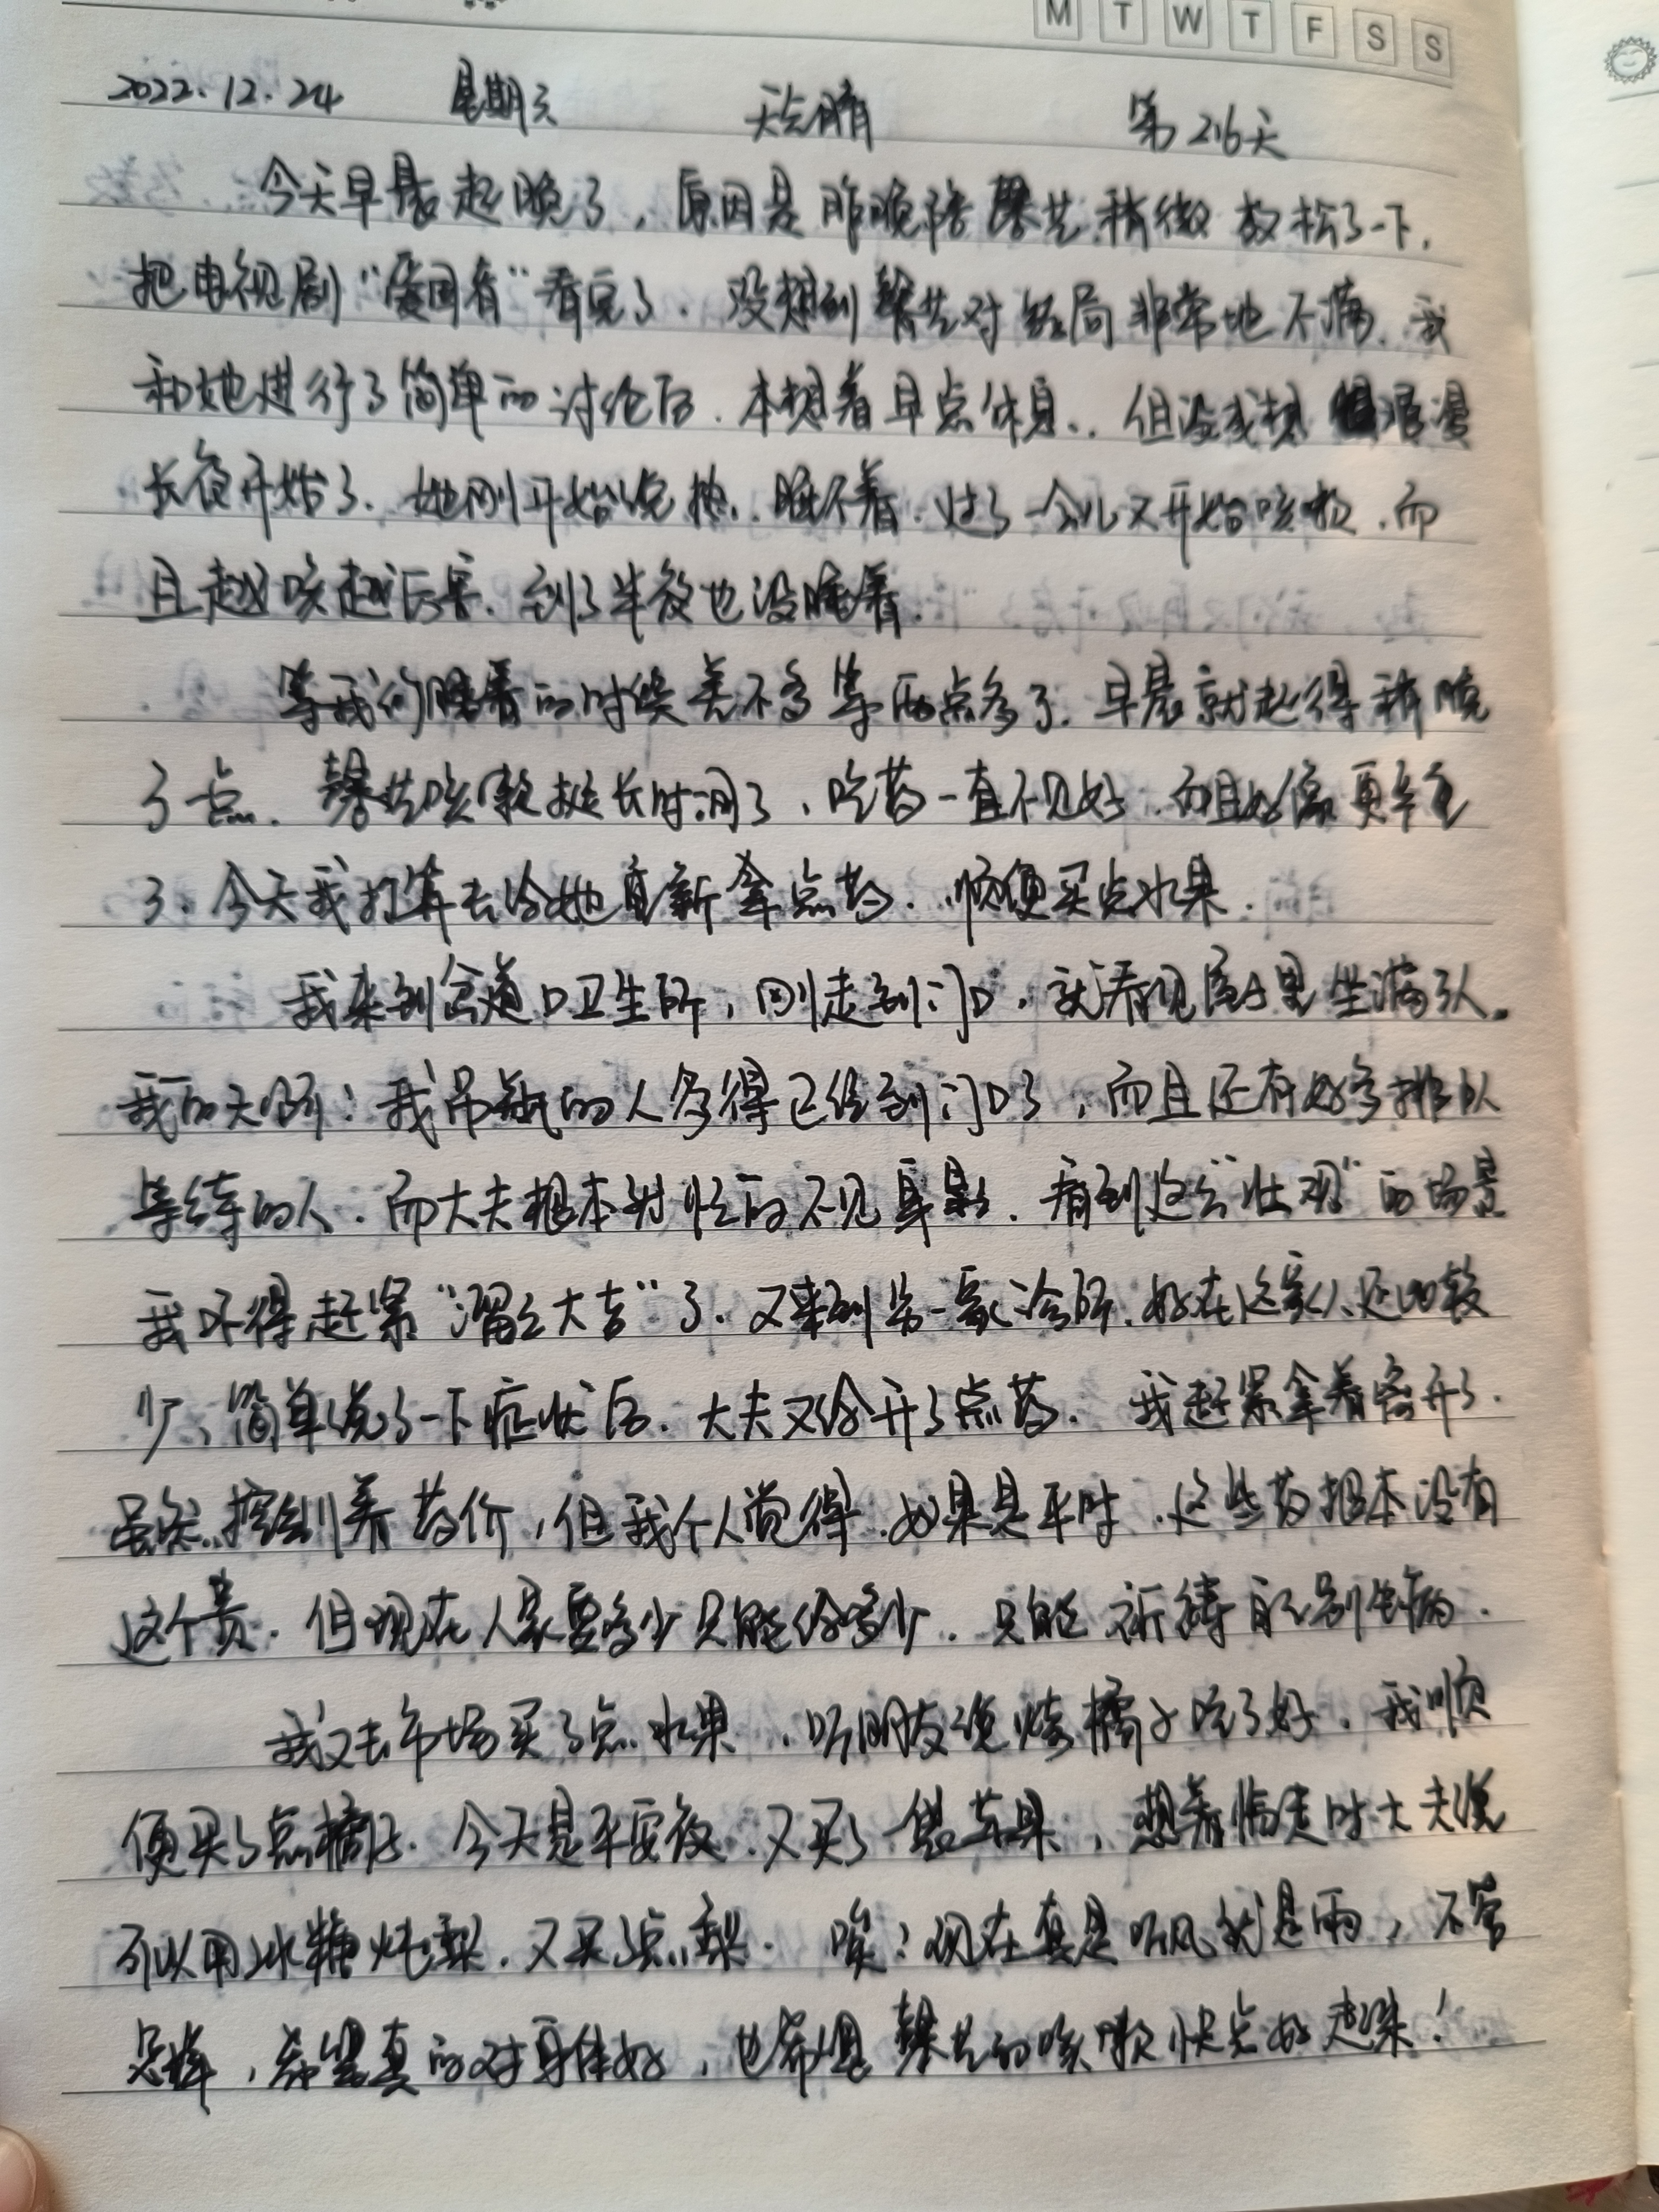 M T W T F S S
2022.12.24 星期六 天气晴 第216天
今天早晨起晚了，原因是昨晚陪馨艺稍微放松了一下，
把电视剧“爱国者”看完了．没想到馨艺对结局非常地不满．我
和她进行了简单的讨论后．本想着早点休息．．但没成想 漫漫
长夜开始了．她刚开始说热．睡不着．过了一会儿又开始咳嗽．而
且越咳越厉害．到了半夜也没睡着．
等我们睡着的时候差不多等两点多了．早晨就起得稍晚
了一点．馨艺咳嗽挺长时间了，吃药一直不见好．而且好像更严重
了．今天我打算去给她重新拿点药．顺便买点水果．
我来到岔道口卫生所，刚走到门口．就看见屋里坐满了人．
我的天哪！我吊瓶的人多得已经到门口了，而且还有好多排队
等待的人．而大夫根本就忙的不见身影．看到这么“壮观”的场景
我不得赶紧“溜之大吉”了．又来到另一家诊所．好在这家人还比较
少，简单说了一下症状后．大夫又给开了点药．我赶紧拿着离开了．
虽然控制着药价，但我个人觉得．如果是平时．这些药根本没有
这个贵．但现在人家要多少只能给多少．只能祈祷自己别生病．
我又去市场买了点水果．听朋友说烧橘子吃了好．我顺
便买了点橘子．今天是平安夜．又买了一些苹果，想着临走时大夫说
可以用冰糖炖梨．又买了点梨．唉！现在真是听风就是雨，不管
怎样，希望真的对身体好，也希望馨艺的咳嗽快点好起来！